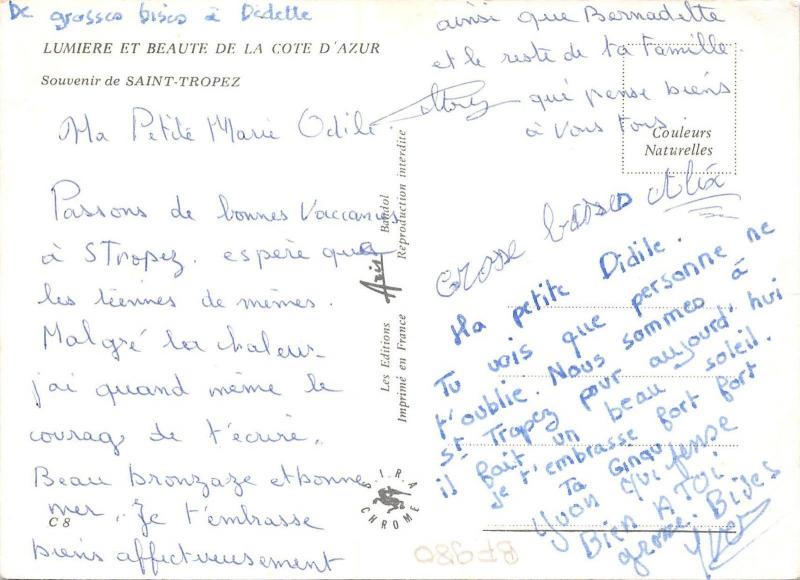 De grosses bises à Dedette
LUMIERE ET BEAUTE DE LA COTE D'AZUR
Souvenir de SAINT-TROPEZ
Ma Petite Marie Odile.
Passons de bonnes Vaccances
à STropez. espère que
les tiennes de mêmes.
Malgré la chaleur
j'ai quand même le
courage de t'écrire.
Beau bronzaze et bonne
mer. Je t'embrasse
biens affectueusement
C 8
ainsi que Bernadette
et le reste de ta famille
qui pense biens
à Vous tous.
Couleurs
Naturelles
Grosse baises Alix
Ma petite Didile.
Tu vois que personne ne
t'oublie. Nous sommes à
St Tropez pour aujourd'hui
il fait un beau soleil.
je t'embrasse fort fort
Ta
Yvon qui pense
Bien A TOI
grosse. Bises
Yvon
Les Editions Aris Bandol
Imprimé en France Reproduction interdite
IRA
CHROME
BF980